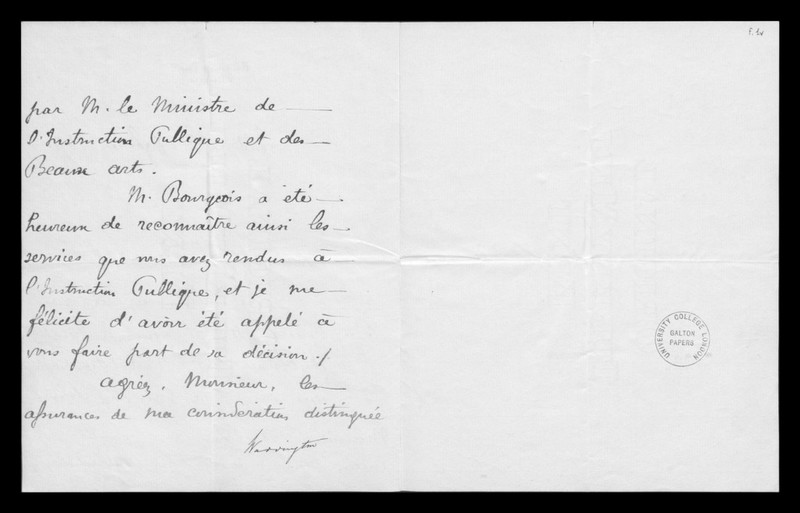 par M. le Ministre de
l'Instruction Publique et des
Beaux arts.
M. Bourgeois a été
heureux de reconnaître ainsi les
services que vous avez rendus à
l'Instruction Publique, et je me
félicite d'avoir été appelé à
vous faire part de sa décision ./
Agréez, Monsieur, les
assurances de ma considération distinguée
UNIVERSITY COLLEGE LONDON
GALTON
PAPERS